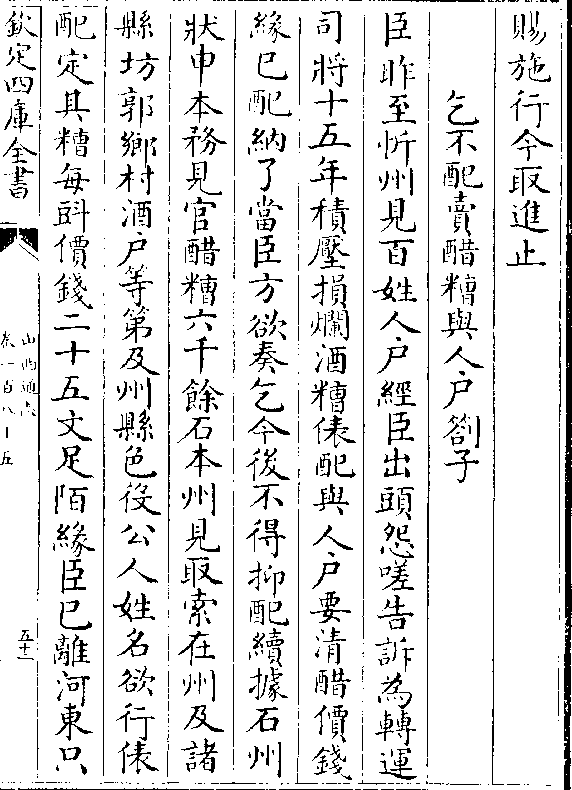 賜施行今取進止
乞不配賣醋糟與人户劄子
臣昨至忻州見百姓人户經臣出頭怨嗟告訴為轉運
司將十五年積壓損爛酒糟俵配與人户要清醋價錢
緣已配納了當臣方欲奏乞今後不得抑配續據石州
狀申本務見官醋糟六千餘石本州見取索在州及諸
縣坊郭鄉村酒户等第及州縣色役公人姓名欲行俵
配定其糟每㪷價錢二十五文足陌緣臣已離河東只
欽定四庫全書
山西通志
卷一百八十五
五十一